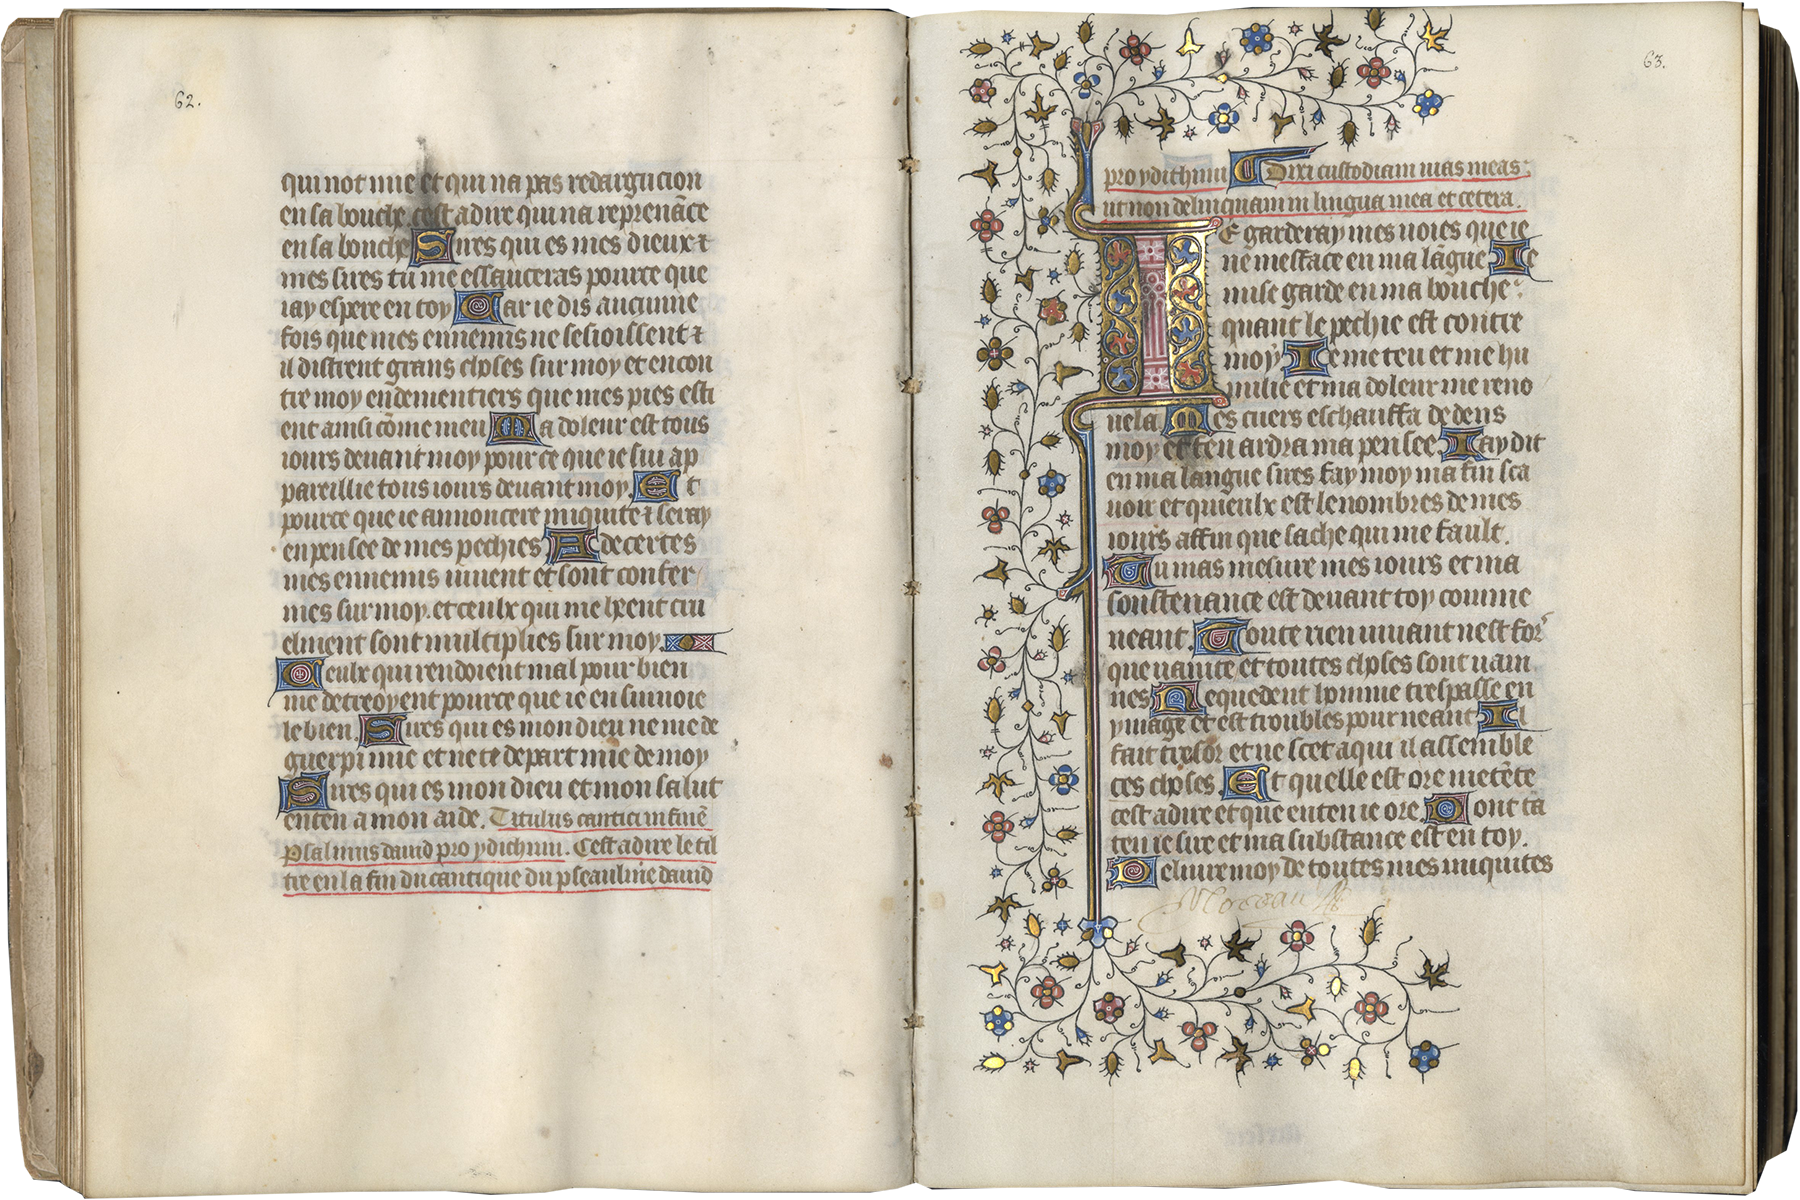 62.
qui not mie et qui na pas redargucion
en sa bouche. cest adire qui na reprenāce
en sa bouche Sires qui es mes dieux ⁊
mes sires tu me essauceras pource que
iay espere en toy Car ie dis aucune
fois que mes ennemis ne sesioissent ⁊
il distrent grans choses sur moy et encon
tre moy endementiers que mes pies esti
ent ainsi cōme meu Ma doleur est tous
iours deuant moy pour ce que ie sui ap
pareillie tous iours deuant moy. Et
pource que ie annoncere iniquite ⁊ seray
en pensee de mes pechies Adecertes
mes ennemis uiuent et sont confer
mes sur moy. et ceulx qui me heent cru
elment sont multiplies sur moy.
Ceulx qui rendoient mal pour bien
me detreoyent pource que ie ensuiuoie
le bien. Sires qui es mon dieu ne me de
guerpi mie et ne te depart mie de moy
Sires qui es mon dieu et mon salut
enten a mon aide. Titulus cantici in finē
Psalmus dauid pro ydichum. Cest adire le til
tre en la fin du cantique du pseaulme dauid
63.
pro ydithum Dixi custodiam uias meas:
ut non delinquam in lingua mea et cetera.
IE garderay mes uoies que ie
ne mesface en ma lāgue Ie
mise garde en ma bouche:
quant le pechie est contre
moy Ie me teu et me hu
milie et ma doleur me reno
uela. Mes cuers eschauffa dedens
moy et feu ardra ma pensee. Iay dit
en ma langue sires fay moy ma fin sca
uoir et quieulx est le nombres de mes
iours affin que sache qui me fault.
Tu mas mesure mes iours et ma
soustenance est deuant toy comme
neant. Toute rien uiuant nest for
que uanite et toutes choses sont uain
nes Nequedent homme trespasse en
ymage et est troubles pour neant Il
fait tresor et ne scet a qui il assemble
ces choses. Et quelle est ore matēte
cest adire et que enten ie ore. Dont tā
ten ie sire et ma substance est en toy.
Deliure moy de toutes mes iniquites
Moreau